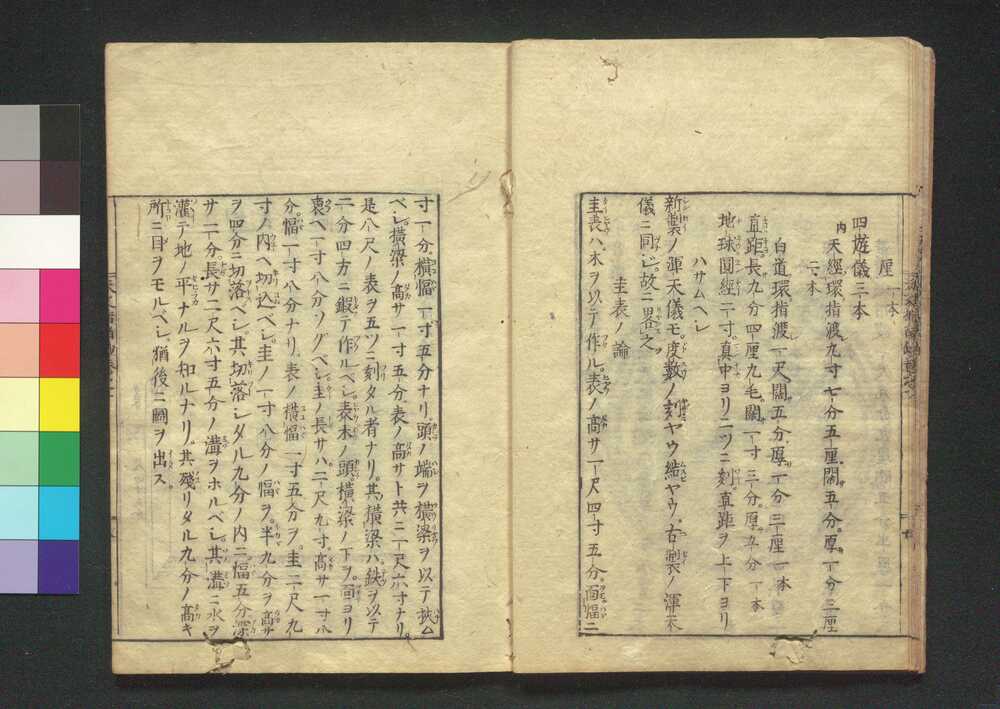 厘 一本
四遊儀三本
内 天經環指渡九寸七分五厘濶五分厚一分三厘
二本
白道環指渡一尺濶五分厚一分三厘一本
直距長九分四厘九毛濶一寸三分厚五分一本
地球圓經二寸真中ヨリ二ツニ刻直距ヲ上下ヨリ
ハサムヘシ
新製ノ渾天儀モ度數ノ刻ヤウ繼ヤウ古製ノ渾天
儀ニ同シ故ニ畧之
圭表ノ論
圭表ハ木ヲ以テ作ル表ノ髙サ一尺四寸五分面幅二
寸一分横幅一寸五分ナリ頭ノ端ヲ横梁ヲ以テ挾ム
ベシ横梁ノ髙サ一寸五分表ノ髙サト共ニ一尺六寸ナリ
是八尺ノ表ヲ五ツニ刻タル者ナリ其横梁ハ鉄ヲ以テ
二分四方ニ鍜テ作ルベシ表木ノ頭横梁ノ下ヲ面ヨリ
裏ヘ一寸八分ソグベシ圭ノ長サハ二尺九寸髙サ一寸八
分幅一寸八分ナリ表ノ横幅一寸五分ヲ圭二尺九
寸ノ内ヘ切込ベシ圭ノ一寸八分ノ幅ヲ半九分ヲ髙サ
ヲ四分ニ切落ベシ其切落シタル九分ノ内ニ幅五分深
サ二分長サ二尺六寸五分ノ溝ヲホルベシ其溝ニ水ヲ
灌テ地ノ平ナルヲ知ルナリ其殘リタル九分ノ髙キ
所ニ目ヲモルベシ猶後ニ圖ヲ出ス